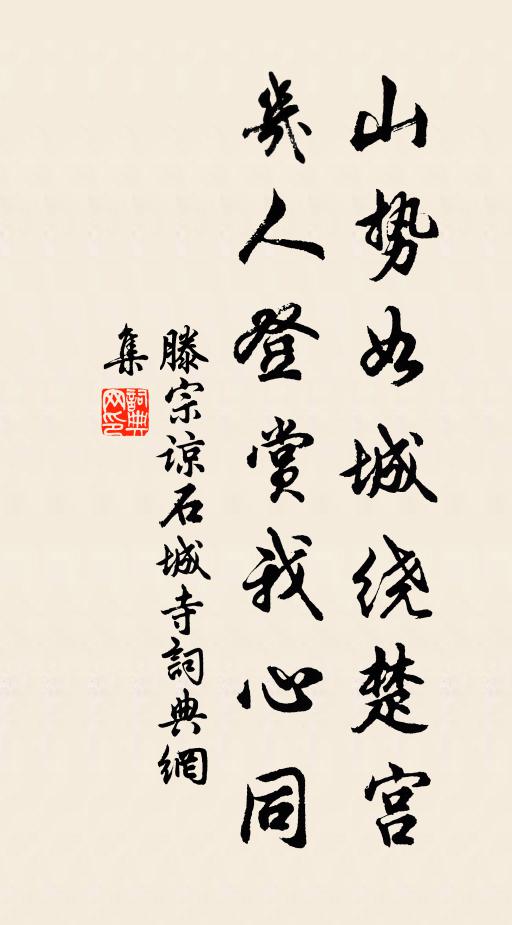 山势如城绕楚宫
幾人登赏我心同
滕宗谅石城寺詞典網
集
詞典
网印